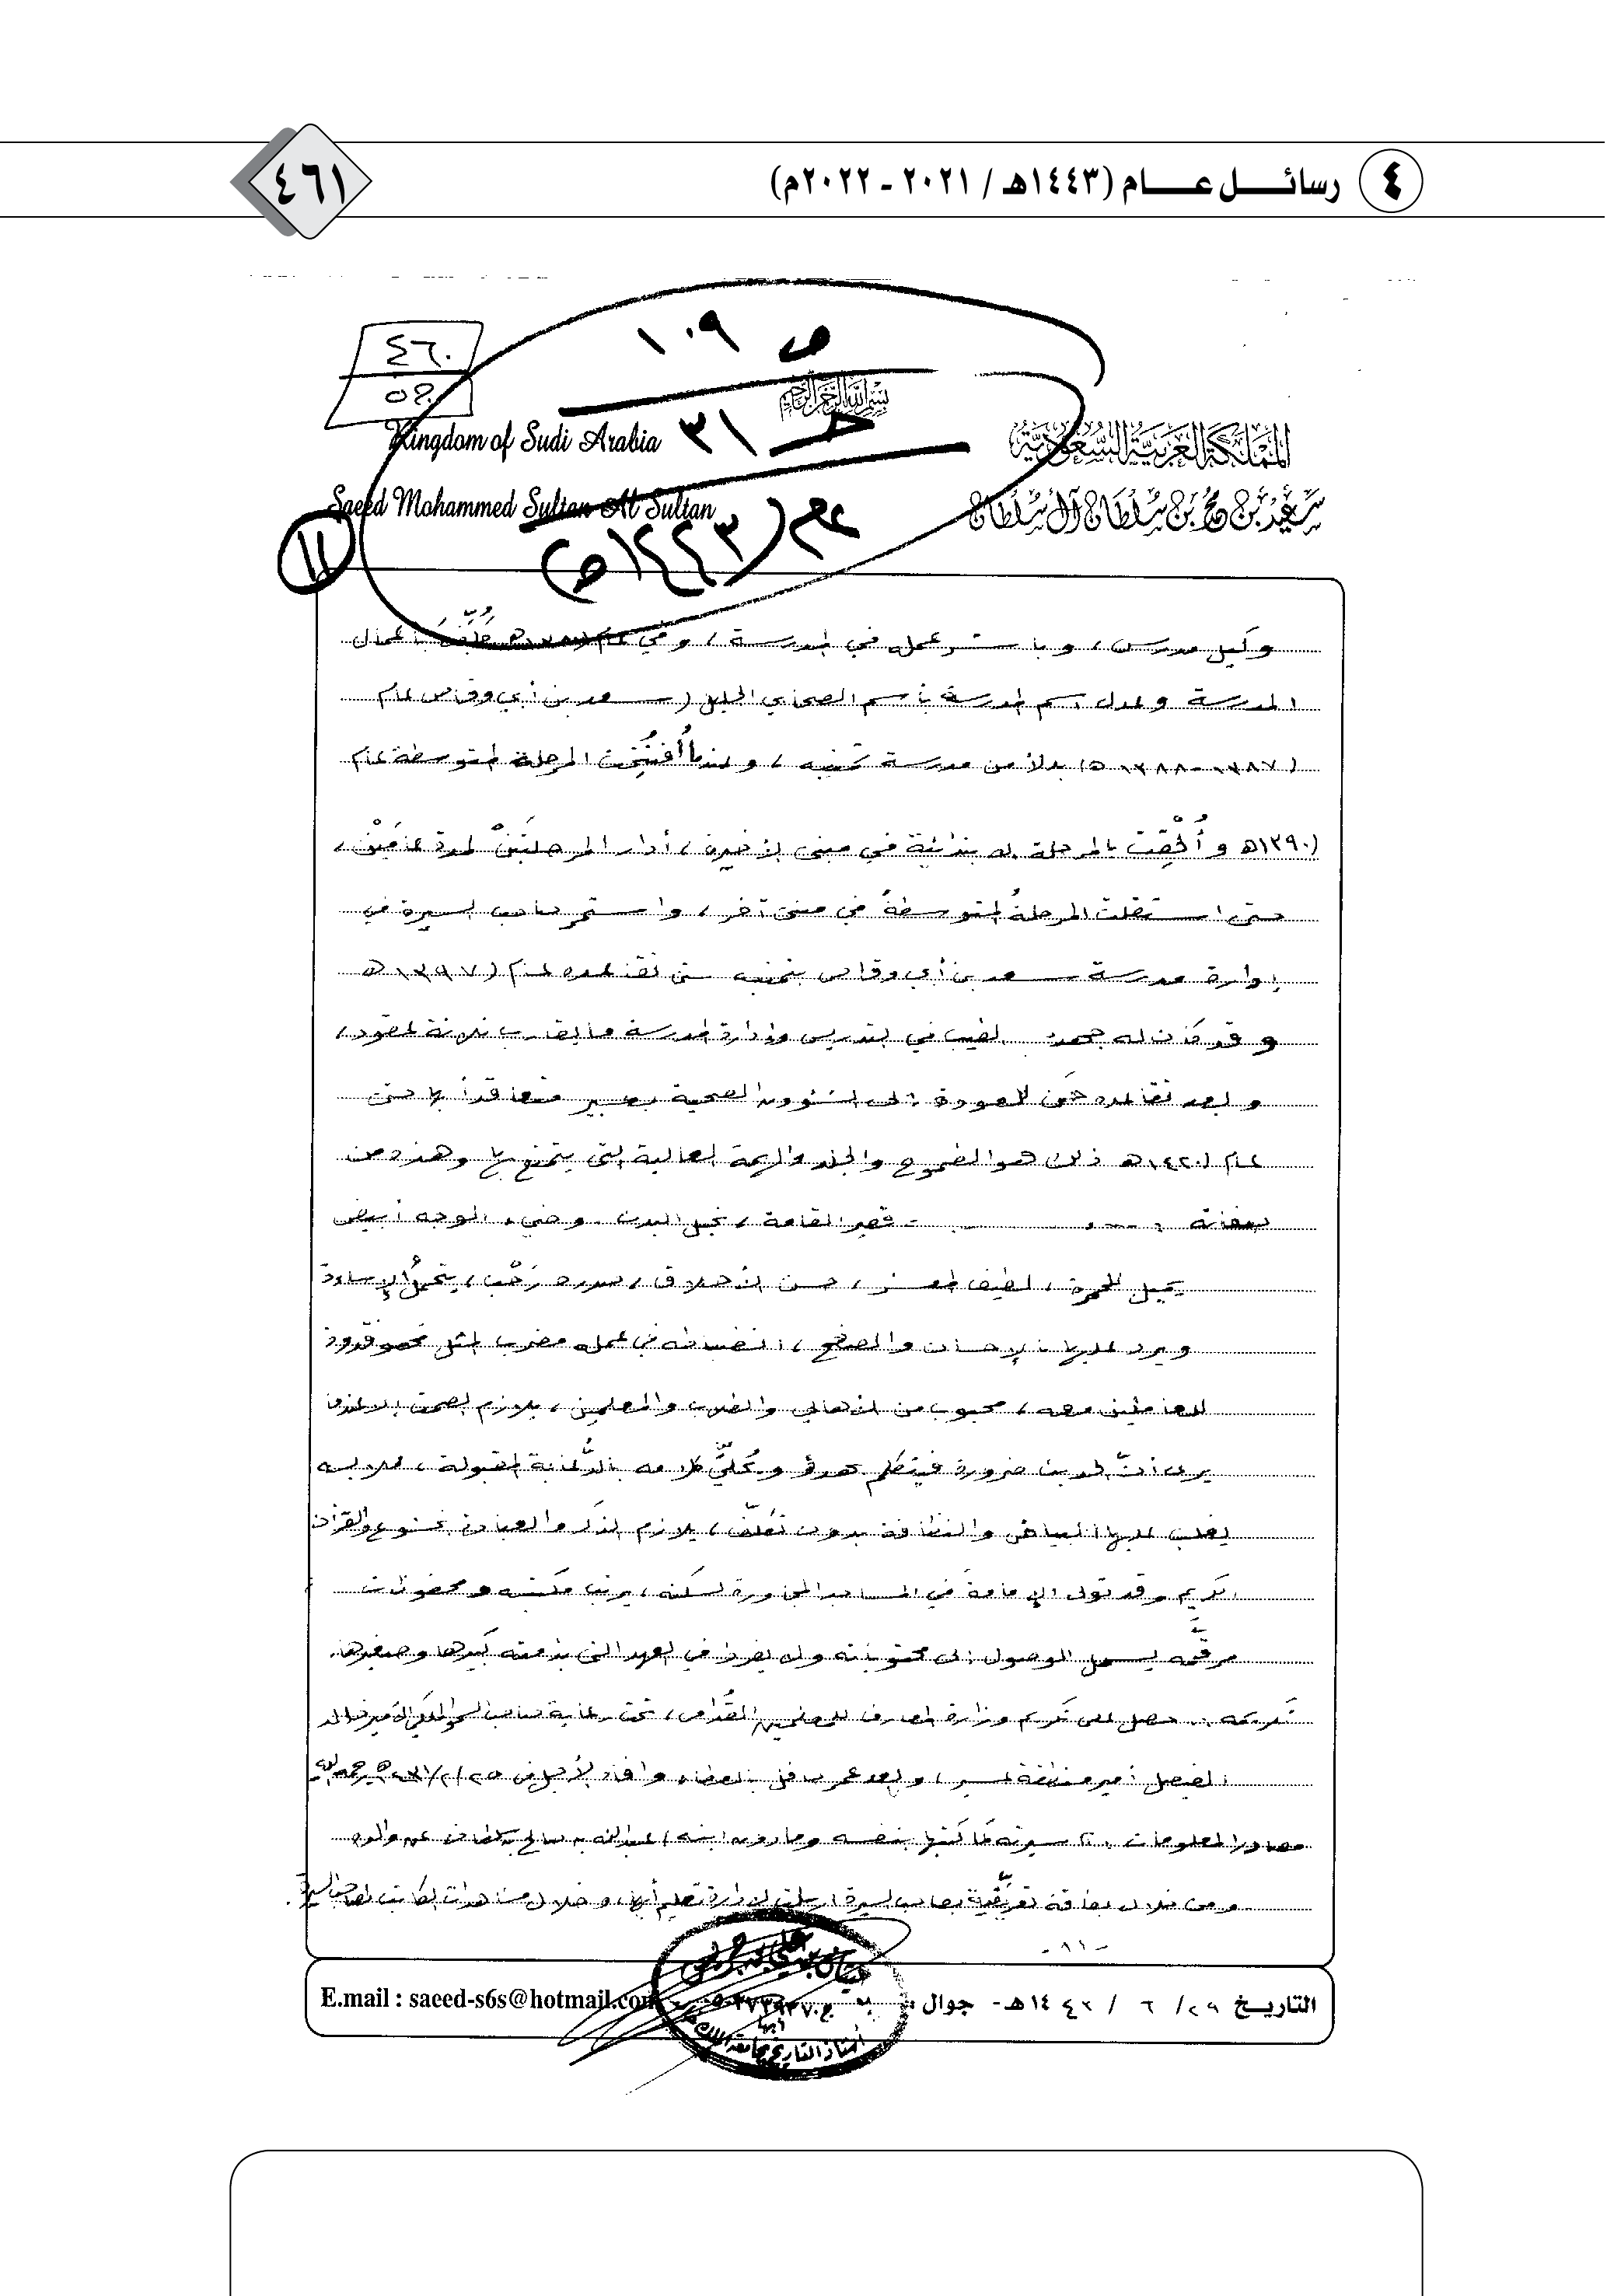 ٤ رسائل عام (١٤٤٣هـ / ٢٠٢١ - ٢٠٢٢م)
٤٦١
٤٦٠
٥٢
ص ١٠٩
جـ ٣١
عام (١٤٤٣هـ)
بسم الله الرحمن الرحيم
Kingdom of Sudi Arabia
المملكة العربية السعودية
Saeed Mohammed Sultan Al Sultan
سعيد بن محمد بن سلطان آل سلطان
١١
وكيل مدرس، وباشر عمله في المدرسة، وفي عام كُلِّفَ بأعمال
المدرسة وعدل اسم المدرسة بأسم الصحابي الجليل (سعد بن أبي وقاص عام
(١٣٨٧-١٣٨٨هـ) بدلاً من مدرسة تمنيه، وعندما أُفتُتِحت المرحلة المتوسطة عام
(١٣٩٠هـ وأُلْحِقَت بالمرحلة الابتدائية في مبنى الأخيرة، أدار المرحلتَيْنْ لمدة عامَيْنْ،
حتى استقلت المرحلةُ المتوسطةُ في مبنى آخر، واستمر صاحب السيرة في
إدارة مدرسة سعد بن أبي وقاص بتمنيه حتى تقاعده عام (١٣٩٧هـ
وقد كان له جهد الطيب في التدريس وإدارة المدرسة ما يقارب ثلاثة عقود،
وبعد تقاعده حَن للعودة إلى الشؤون الصحية بعسير متعاقداً بها حتى
عام (١٤٢٠هـ ذلك هو الطموح والجلد والهمة العالية التي يتمتع بها وهذه من
صفاته : قصير القامة، نحيل البدن، وضيء الوجه أبيض
يميل للحمرة، لطيف المعشر، حسن الأخلاق، صدره رَحْب، يتحملُ الإساءة
ويرد عليها بالإحسان والصفح، انضباطه في عمله مضرب المثل فهو قدوة
للعاملين معه، محبوب من الأهالي والطلاب والمعلمين، يلازم الصمت إلا عندما
يرى أنَّ الحديث ضرورة فيتكلم بهدوء ويُحلّي كلامه بالدُّعابة المقبولة، ملابسه
يغلب عليها البياض والنظافة بدون تكلّف، يلازم الذكر والعبادة بخشوع والقرآن
الكريم وقد تولى الإمامة في المساجد المجاورة لسكنه، يرتب مكتبه ومحفوظات
مرقّمه يسهل الوصول إلى محتوياته ولا يفرط في العهد التي بذمته كبيرها وصغيرها.
تكريمه :. حصل على تكريم وزارة المعارف للمعلمين القُدامى، تحت رعاية صاحب السمو الملكي الأمير خالد
الفيصل أمير منطقة عسير، وبعد عمر حافل بالعطاء وافاه الأجل في رحمه الله
مصادر المعلومات :. سيرته كما كتبها بنفسه وما رواه ابنه / عبدالله بن صالح بن سلطان عن والده
ومن خلال بطاقة تعريفيّة بصاحب السيرة ارسلت لإدارة تعليم أبها، وخلال مشاهدات الكاتب لصاحب السيرة.
-٨١-
التاريخ ٢٩/ ٦ / ١٤٤٣هـ - جوال :
E.mail : saeed-s6s@hotmail.com
أبها